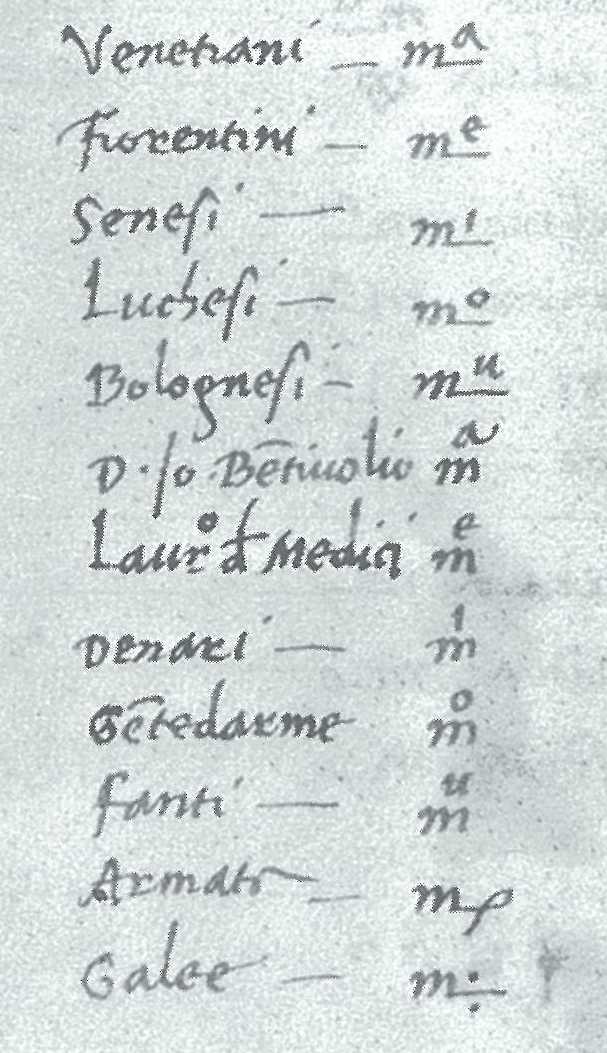 Venetiani — mᵃ
fiorentini — mᵉ
Senesi — mⁱ
Luchesi — mᵒ
Bolognesi — mᵘ
D. Jo. Bētivolio mᵃ
Laurº d Medici mᵉ
Denari — mⁱ
Gētedarme mᵒ
fanti — mᵘ
Armati — mρ
Galee — m: